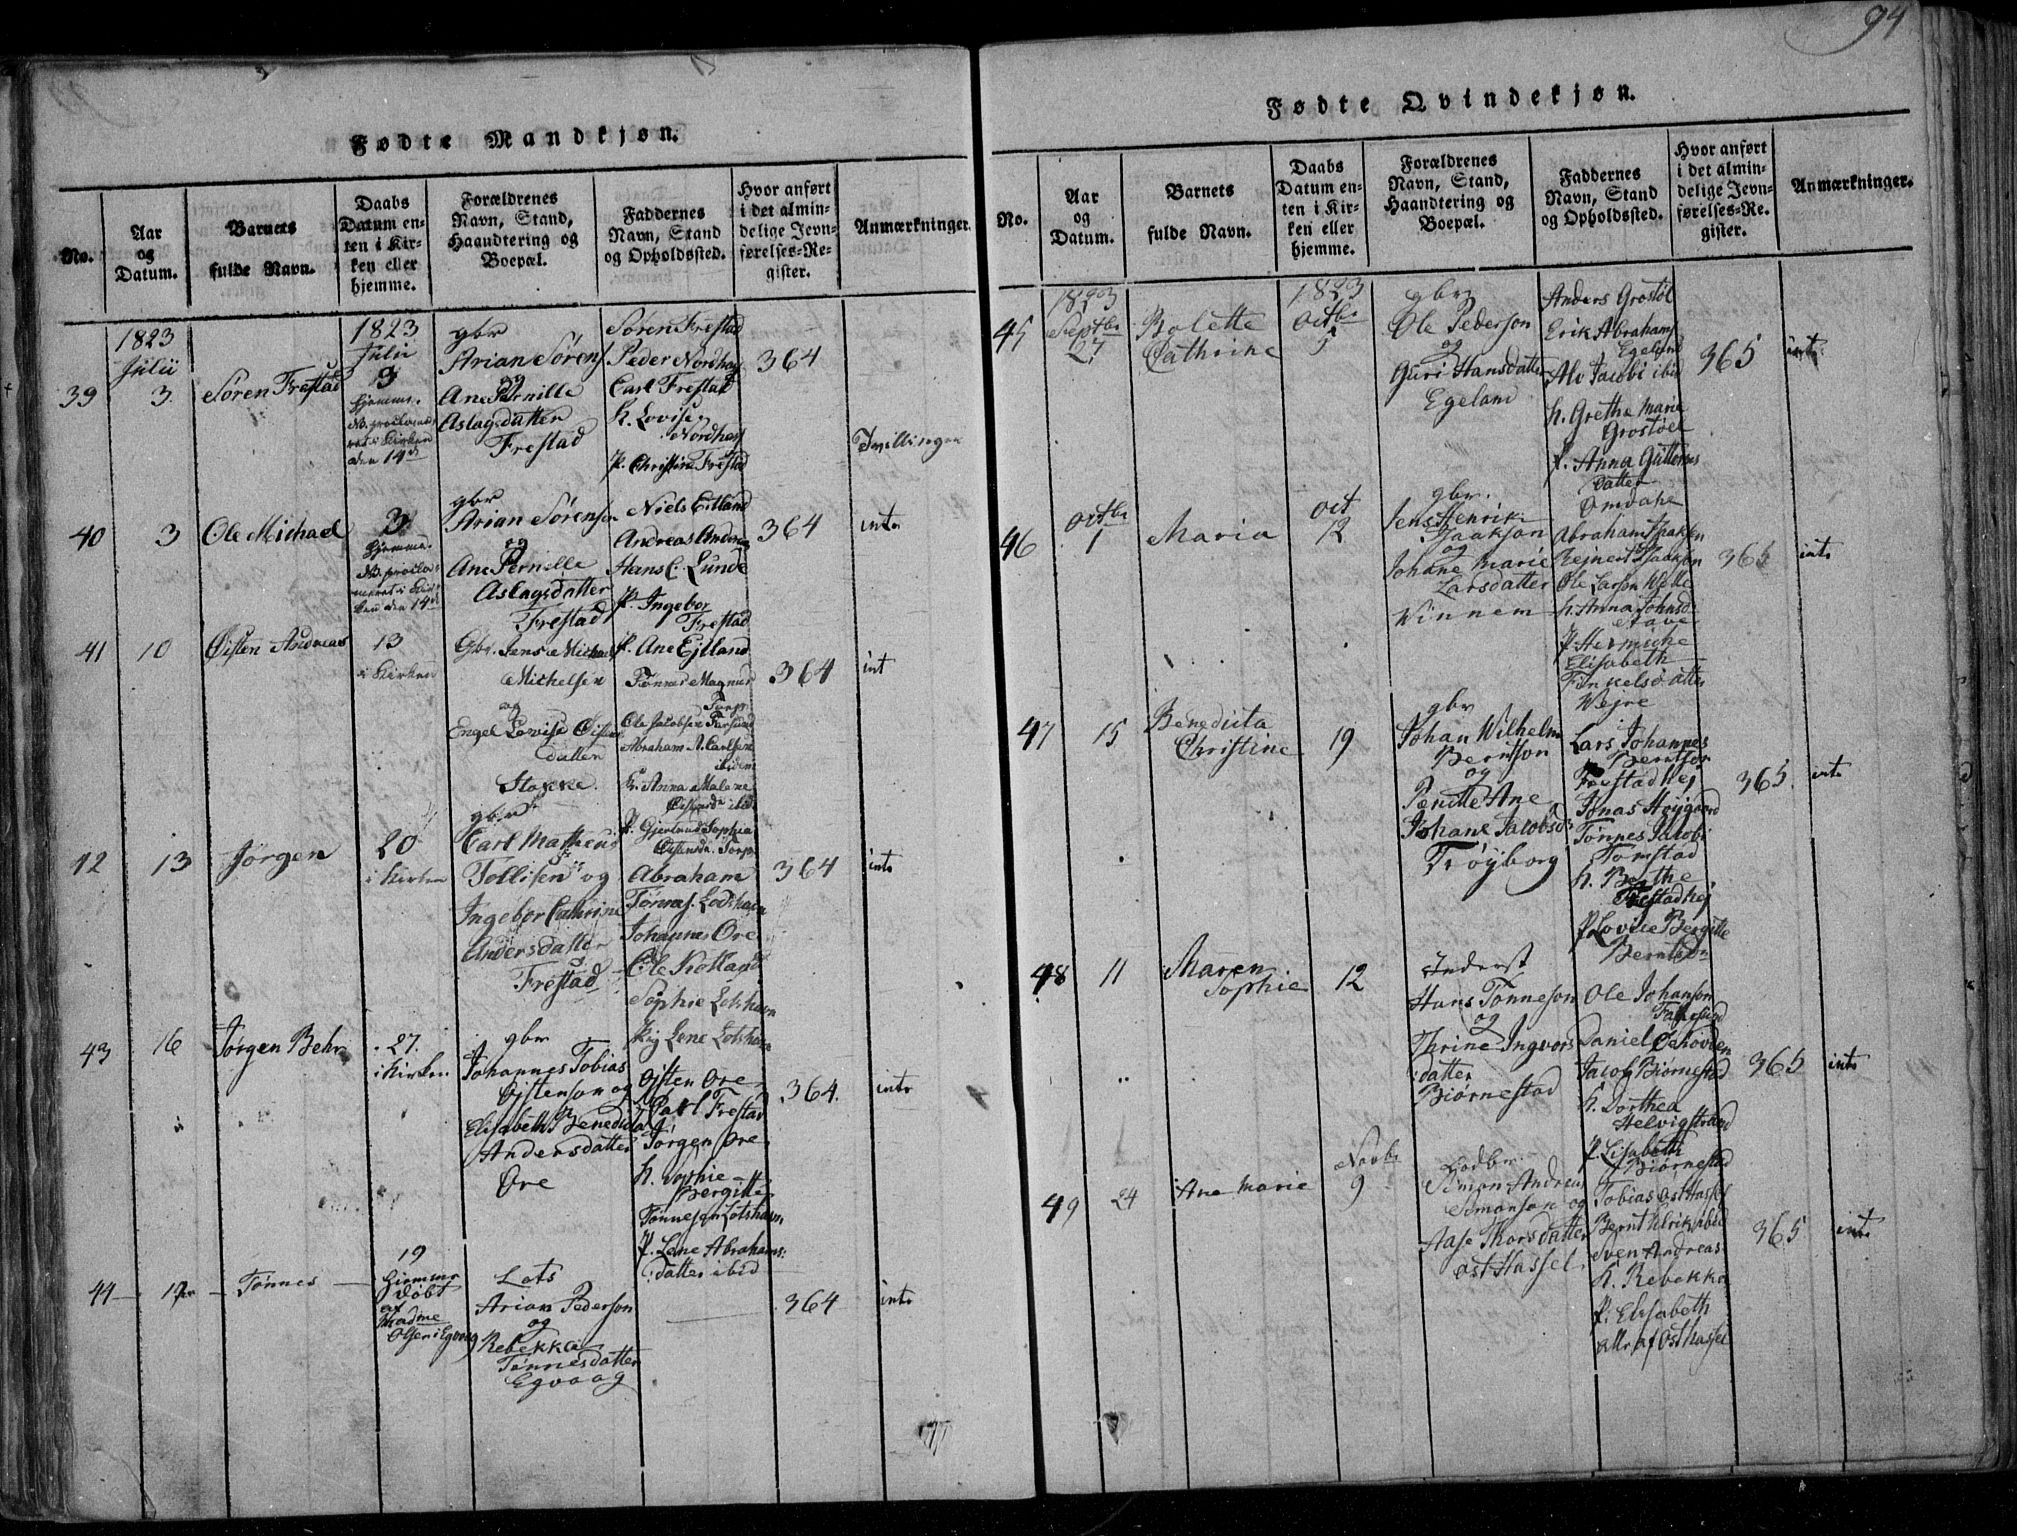 94
Fødte Mandkjøn.
No.
Aar
og
Datum.
Barnets
fulde Navn.
Daabs
Datum en-
ten i Kir-
ken eller
hjemme.
Forældrenes
Navn, Stand,
Haandtering og
Boepæl.
Faddernes
Navn, Stand
og Opholdssted.
Hvor anført
i det almin-
delige Jevn-
førelses-Re-
gister.
Anmærkninger.
1823
Julii
39
3.
Søren Frestad
1823
Julii
3
hjemme.
den 14de
gbr
Arian Sørens
og
Ane Pernille
Aslagsdatter
Frestad
Søren Frestad
Peder Nordhas
Carl Frestad
h. Lovise
Nordhas
P. Christine Frestad
364
Tvillinger
40
3
Ole Michael
3
hjemme.
ken den 14de
gbr
Arian Sørenson
og
Ane Pernille
Aslagsdatter
Frestad
Niels Eitland
Andreas
Hans C. Lunde
P. Ingebor
Frestad
364
intr
41
10
Øisten Andreas
13
i Kirken
Gbr. Jens Michael
Michelsen
og
Engel Lovise Øistens
datter
Stokke.
P. Ane Ejtland
Tønnes Magnus
Torp
Ole Jacobsen
Abraham A. Carlsen
ibidem
K. Anna Malene
ibid
P. Gjertrud Sophia
Øistensda. Torp
364
int
42
13
Jørgen
20
i Kirken
gbr
Carl Matheus
Tollisen og
Ingebor Cathrine
Andersdatter
Frestad
Abraham
Tønnes. Lodshavn
Johannes Ore
Ole Kolland
Sophie Lotshavn
Pig Lene Lotshavn
364
intr
43
16
Jørgen Behr
27.
i Kirken
gbr
Johannes Tobias
Ojstenson og
Elisabeth Benedicta
Andersdatter
Øre
Ojsten Ore
Carl Frestad
Jørgen Ore
h. Sophie
Bergitte
Tønneson Lotshavn
P. Lene Abrahams:
datter ibid
364.
intr
44
Tønnes
19
hjemme
døbt
af
Madme
Olsen i Egvaag
Lots
Arian Pederson
og
Rebekka
Tønnesdatter
Egvaag
364
intr
Fødte Qvindekjøn.
No.
Aar
og
Datum.
Barnets
fulde Navn.
Daabs
Datum en-
ten i Kir-
ken eller
hjemme.
Forældrenes
Navn, Stand,
Haandtering og
Boepæl.
Faddernes
Navn, Stand
og Opholdssted.
Hvor anført
i det almin-
delige Jevn-
førelses-Re-
gister.
Anmærkninger.
1823
45
Septbr
27
Bolette
Cathrine
1823
Octbr
5
gbr
Ole Pederson
og
Guri Hansdatter
Egeland
Anders Grostøl
Erik Abrahams
Egeland
Alv Jacobi ibid
h. Grethe Marie
Grostøl
P. Anna Guttorms
datter
Omdahl
365
intr
46
Octbr
1
Maria
Oct
12
gbr.
Jens Henrik
Isaakson
og
Johane Marie
Larsdatter
Winnem
Abraham Isakson
Reinert Isaakson
Ole Larson
h. Anna Johnsd.
Stave
P. Hermiche
Elisabeth
Tinkelsdatter
Vejre
365
intr
47
15
Benedicta
Christine
19
gbr
Johan Wilhelm
Berntson
og
Pernille Ane
Johane Jacobsd
Frøyborg
Lars Johannes
Berntson
Frestadhej
Jonas Høygaard
Tønnes Jacobi
Tomstad
h. Berthe
Frestadhej
P. Lovise Bergitte
Berntson
365.
intr
48
11
Maren
Sophie
12
Inderst
Hans Tønneson
og
Thrine Ingvors
datter
Biørnestad
Ole Johanson
Farsund
Daniel
Jacob Biørnestad
h. Dorthea
Helvigstrand
P. Lisabeth
Biørnestad
365
intr
49
24
Ane Marie
Novbr
9
Lodbr.
Simon Andreas
Simonson og
Aase Thorsdatter
Øst Hassel
Tobias Øst Hassel
Bernt Ulrik ibid
Sven Andreas
h. Rebekka
P. Elisabeth
alle af Østhassel
365
intr